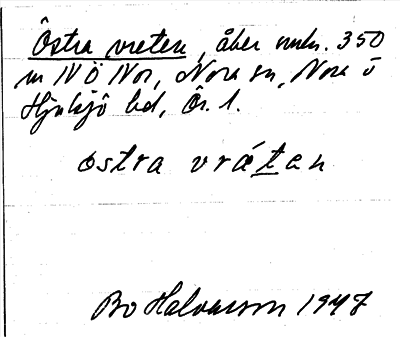 Östra vreten, åker omkr. 350
m NÖ Nor, Nora sn, Nora o
Hjulsjö bd, Ör. l.
östra vrǻt̲en
Bo Halvarson 1947